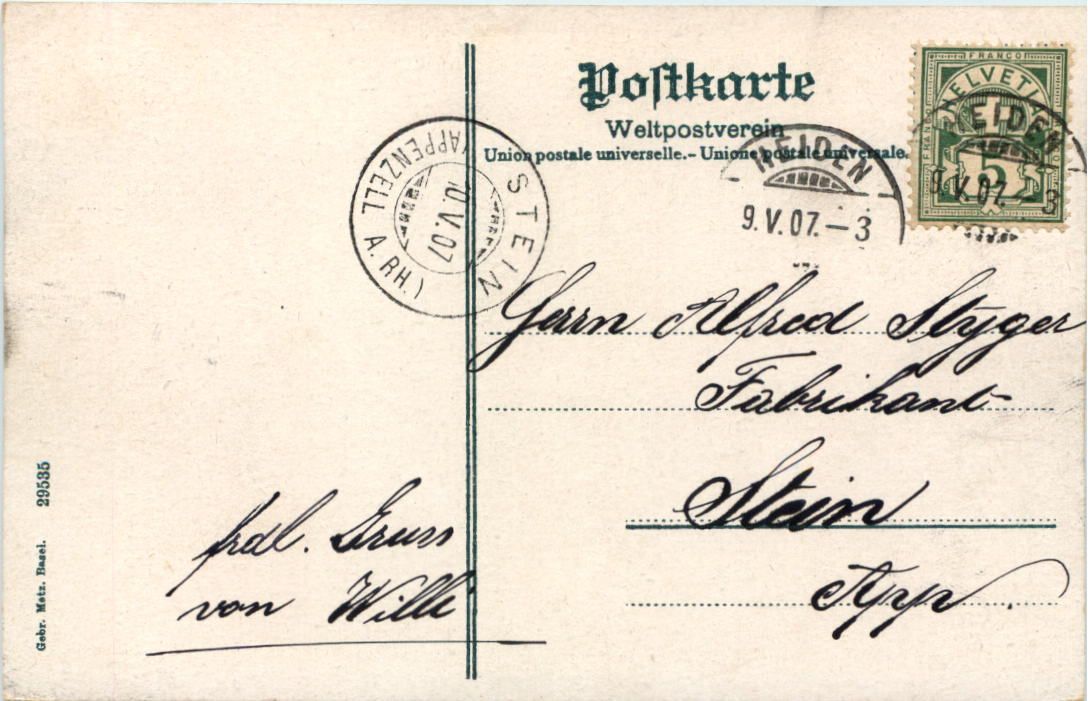 Postkarte
Weltpostverein
Union postale universelle.- Unione postale universale.
FRANCO
HELVETIA
FRANCO
5
HEIDEN
9.V.07.-3
HEIDEN
9.V.07.-3
STEIN
(APPENZELL A. RH.)
10.V.07
Herrn Alfred Styger
Fabrikant
Stein
App.
frdl. Gruss
von Willi
Gebr. Metz, Basel. 29535